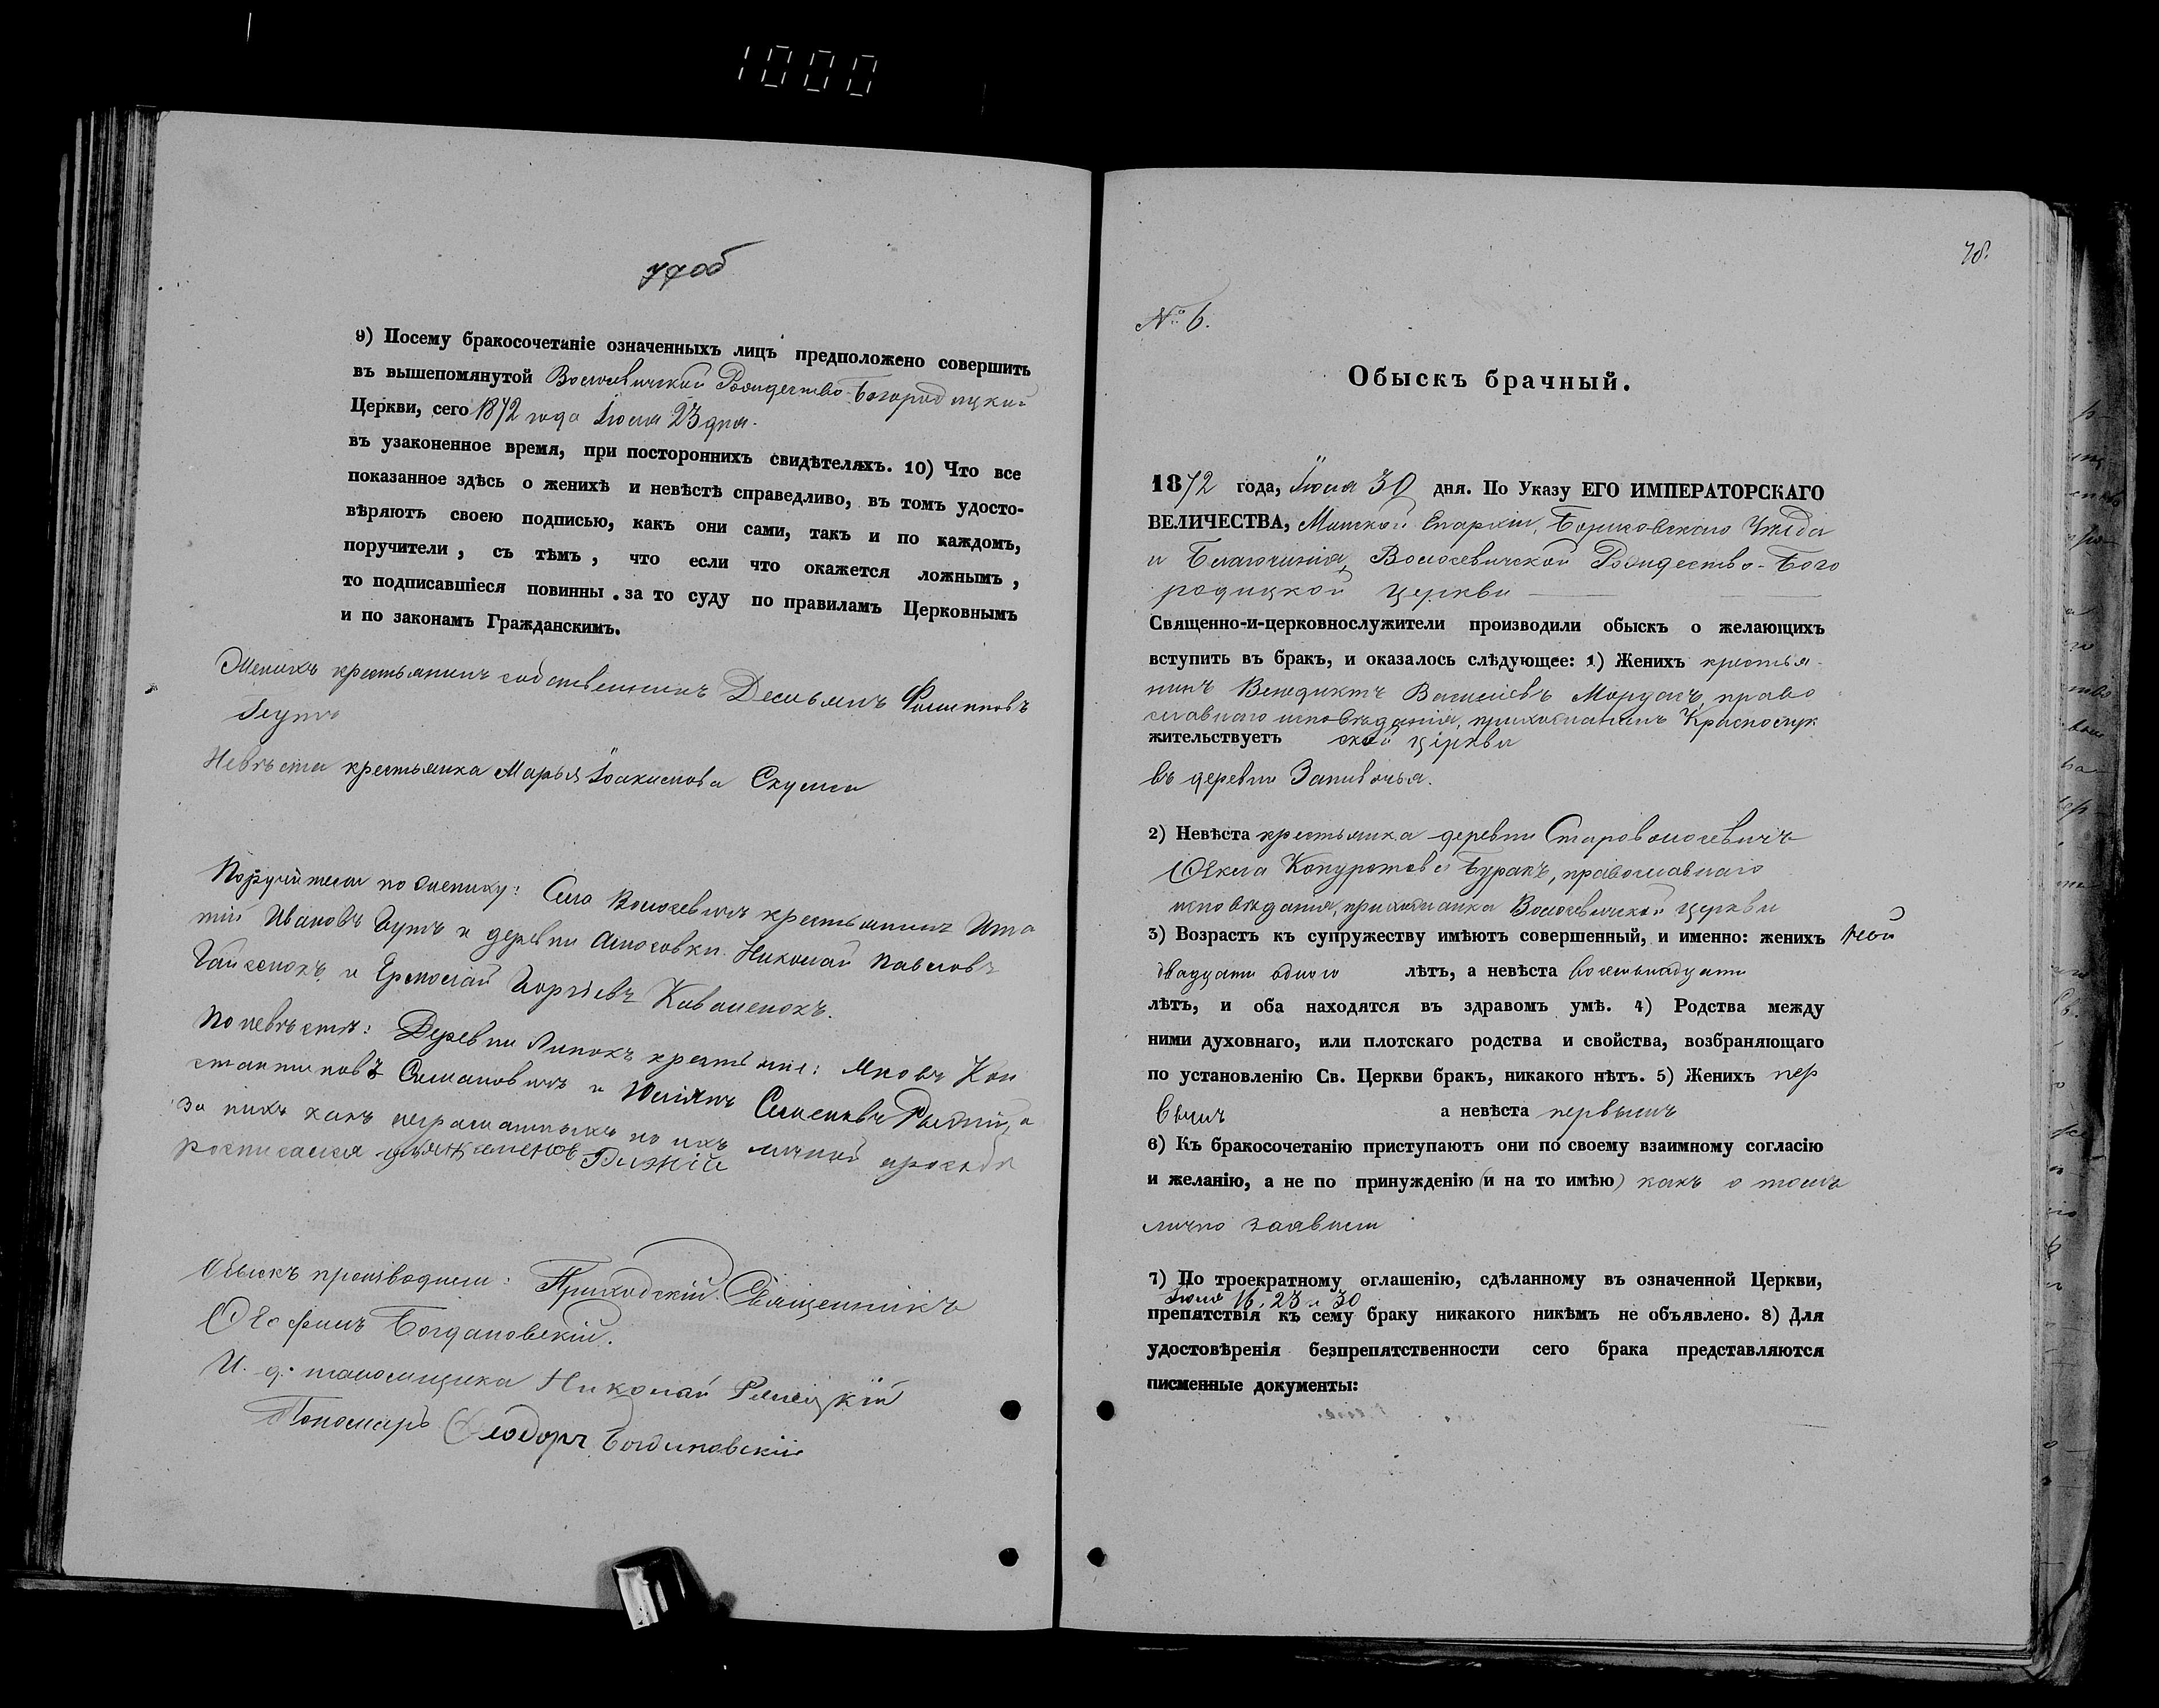 1000
77об
9) Посему бракосочетаніе означенныхъ лицъ предположено совершить
въ вышепомянутой Волосевичской Рождество-Богородицкой
Церкви, сего 1872 года Іюля 23 дня.
въ узаконенное время, при постороннихъ свидѣтеляхъ. 10) Что все
показанное здѣсь о женихѣ и невѣстѣ справедливо, въ томъ удосто-
вѣряютъ своею подписью, какъ они сами, такъ и по каждомъ,
поручители, съ тѣмъ, что если что окажется ложнымъ,
то подписавшіеся повинны за то суду по правиламъ Церковнымъ
и по законамъ Гражданскимъ.
Женихъ крестьянинъ собственникъ Демьянъ Филиповъ
Невѣста крестьянка Марья Іоакимова
Поручители по женихѣ: Села Волосевичъ крестьянинъ Игна
тій Ивановъ и деревни Николай Павловъ
и Ермолай
По невѣстѣ: Деревни Липокъ крестьяне: Яковъ Кон
стантиновъ и Юліянъ Семеновъ Рыжій, а
за нихъ какъ неграмотныхъ по ихъ личной просьбѣ
росписался Рижій
Обыскъ производили: Приходскій Священникъ
Богдановскій.
И. д. псаломщика Николай
Пономарь Ѳеодоръ Богдановскій
78.
№ 6.
Обыскъ брачный.
1872 года, Іюля 30 дня. По Указу ЕГО ИМПЕРАТОРСКАГО
ВЕЛИЧЕСТВА, Минской Епархіи, Борисовскаго Уѣзда
и Благочинія, Волосевичской Рождество-Бого
родицкой церкви
Священно-и-церковнослужители производили обыскъ о желающихъ
вступить въ бракъ, и оказалось слѣдующее: 1) Женихъ крестья-
нинъ Венедиктъ Васильевъ право
славнаго исповѣданія, прихожанинъ Краснолук
жительствуетъ ской церкви
въ деревни
2) Невѣста крестьянка деревни Староволосевичъ
Буракъ, православнаго
исповѣданія, прихожанка Волосевичской церкви
3) Возрастъ къ супружеству имѣютъ совершенный, и именно: женихъ мой
двадцати одного лѣтъ, а невѣста восемьнадцати
лѣтъ, и оба находятся въ здравомъ умѣ. 4) Родства между
ними духовнаго, или плотскаго родства и свойства, возбраняющаго
по установленію Св. Церкви бракъ, никакого нѣтъ. 5) Женихъ пер
вымъ а невѣста первымъ
6) Къ бракосочетанію приступаютъ они по своему взаимному согласію
и желанію, а не по принужденію (и на то имѣю) какъ о томъ
лично заявили
7) По троекратному оглашенію, сдѣланному въ означенной Церкви,
Іюля 16, 23 и 30
препятствія къ сему браку никакого никѣмъ не объявлено. 8) Для
удостовѣренія безпрепятственности сего брака представляются
писменные документы: